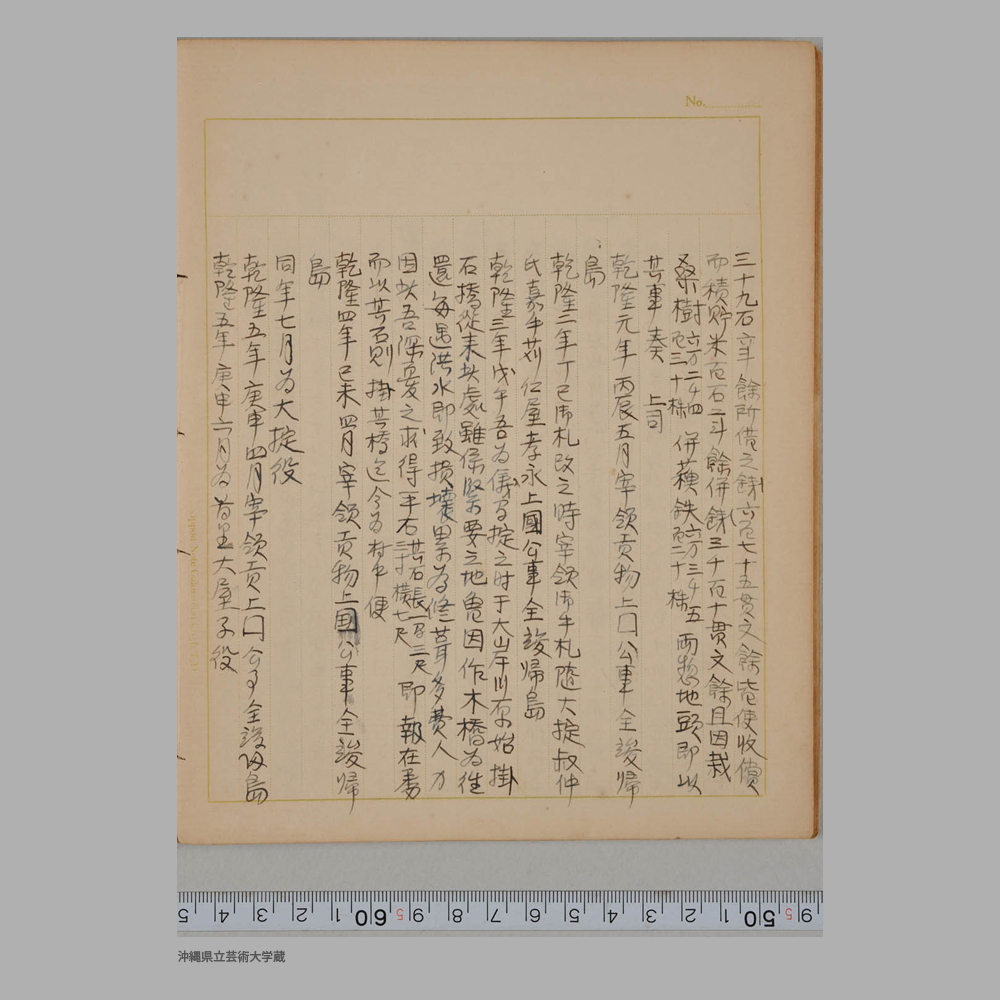 No.
三十九石 餘所借之銭六百七十五貫文餘 使收償
而積貯米百石二斗餘併銭三千百十貫文餘且因栽
桑樹 三十株 併蘓鉄 二十株 両惣地頭即以
其事奏 上司
乾隆元年丙辰五月宰領貢物上囗公事全竣帰
島
乾隆二年丁巳御札改之時宰領御手札随大掟叔仲
氏嘉手苅仁屋孝永上國公事全竣帰島
乾隆三年戊午吾為儀間掟之时于大山 川原始掛
石橋從来此處雖係緊要之地曽因作木橋為徃
還毎遇洪水即致損壊累為修葺多費人力
因此吾深憂之求得一平石 其石長一弓三尺 横七尺 即報在番
而以其石則掛其橋迄今為村中便
乾隆四年己未四月宰領貢物上国公事全竣帰
島
同年七月為大掟役
乾隆五年庚申四月宰領貢上囗公事全竣帰島
乾隆五年庚申六月為首里大屋子役
5 4 3 2 1 60 5 9 8 7 6 5 4 3 2 1 50 5 9
沖縄県立芸術大学蔵